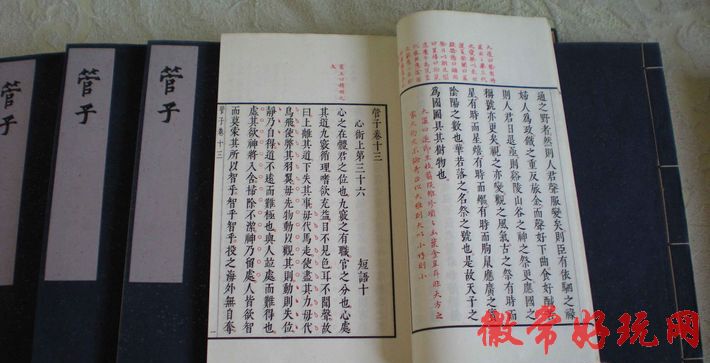 管子
管子
管子
通之野者然則人君聲服變矣則臣有依駟之祿
婦人為政鐵之重反旅金而聲好下曲食好醎苦
則人君日退亟則谿陵山谷之神之祭更應國之
稱號亦更矣視之亦變觀之風氣古之祭有時而
星有時而星熺有時而熰有時而朐鼠應廣之實
陰陽之數也華若落之名祭之號也是故天子之
為國圖具其樹物也
管子卷十三
心術上第三十六 短語十
心之在體君之位也九竅之有職官之分也心處
其道九竅循理嗜欲充益目不見色耳不聞聲故
曰上離其道下失其事毋代馬走使盡其力毋代
鳥飛使弊其羽翼毋先物動以觀其則動則失位
靜乃自得道不遠而難極也與人並處而難得也
虛其欲神將入舍掃除不潔神乃留處人皆欲智
而莫索其所以智乎智乎智乎投之海外無自奪
管子卷十三 一
徽常好玩网